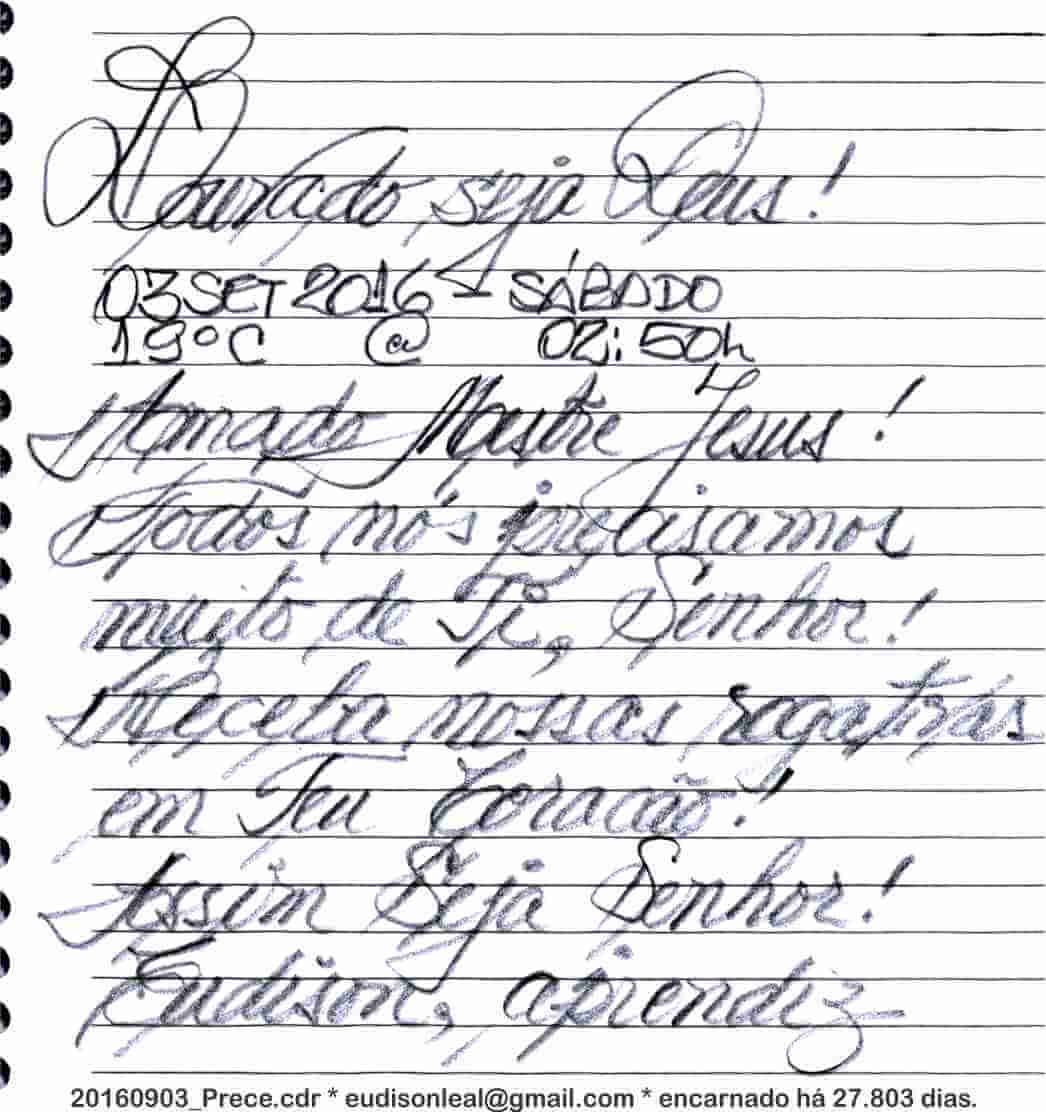 Louvado seja Deus!
03SET2016 - SÁBADO
19°C @ 02:50h
Amado Mestre Jesus!
Todos nós precisamos
muito de Ti, Senhor!
Receba nossas rogativas
em Teu Coração!
Assim Seja Senhor!
Eudison, aprendiz
20160903_Prece.cdr * eudisonleal@gmail.com * encarnado há 27.803 dias.